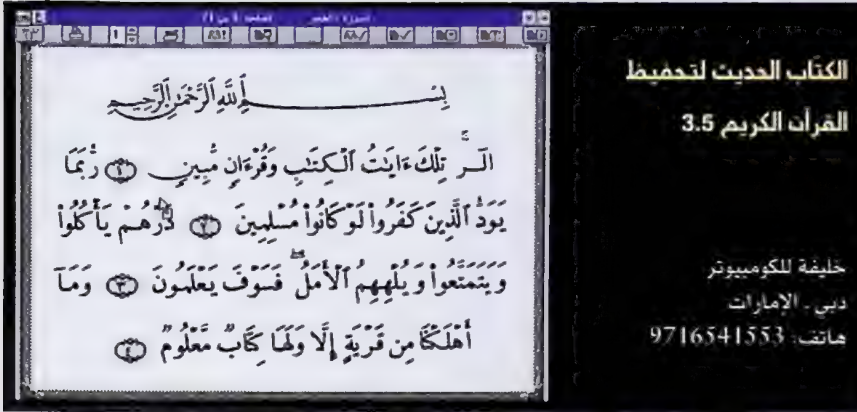 بِسْمِ ٱللَّهِ ٱلرَّحْمَٰنِ ٱلرَّحِيمِ
الٓر تِلْكَ ءَايَٰتُ ٱلْكِتَٰبِ وَقُرْءَانٍ مُّبِينٍ ١ رُّبَمَا
يَوَدُّ ٱلَّذِينَ كَفَرُوا۟ لَوْ كَانُوا۟ مُسْلِمِينَ ٢ ذَرْهُمْ يَأْكُلُوا۟
وَيَتَمَتَّعُوا۟ وَيُلْهِهِمُ ٱلْأَمَلُ ۖ فَسَوْفَ يَعْلَمُونَ ٣ وَمَآ
أَهْلَكْنَا مِن قَرْيَةٍ إِلَّا وَلَهَا كِتَابٌ مَّعْلُومٌ ٤
الكتاب الحديث لتحفيظ
القرآن الكريم 3.5
خليفة للكومبيوتر
دبي . الإمارات
هاتف: 9716541553